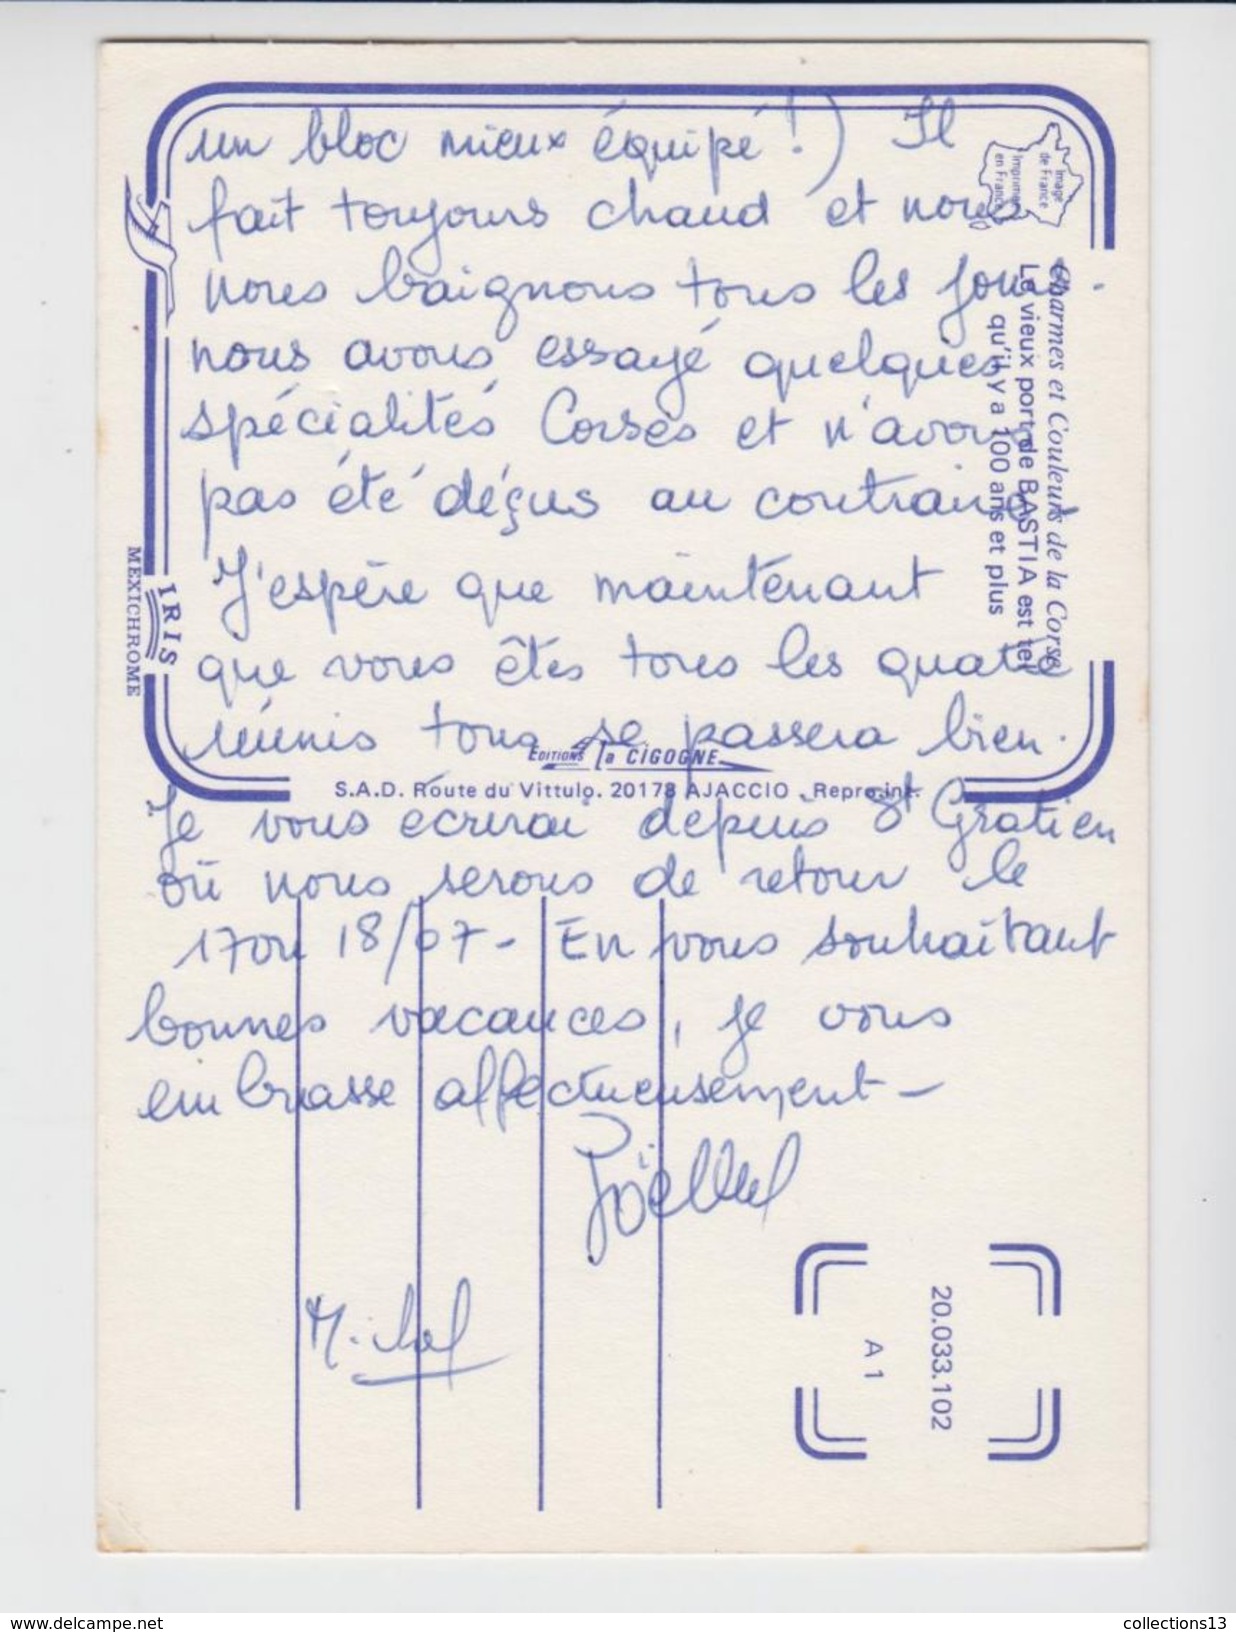 un bloc mieux équipé !) Il
fait toujours chaud et nous
nous baignons tous les jours.
nous avons essayé quelques
spécialités Corses et n'avons
pas été déçus au contraire.
J'espère que maintenant
que vous êtes tous les quatre
réunis tout se passera bien.
Je vous écrirai depuis St Gratien
où nous serons de retour le
17 ou 18/07 - En vous souhaitant
bonnes vacances, je vous
embrasse affectueusement -
Joëlle
Michel
Image
de France
Imprimé
en France
Charmes et Couleurs de la Corse
Le vieux port de BASTIA est tel
qu'il y a 100 ans et plus
IRIS
MEXICHROME
EDITIONS la CIGOGNE
S.A.D. Route du Vittulo. 20178 AJACCIO - Repro. int.
20.033.102
A 1
www.delcampe.net
collections13